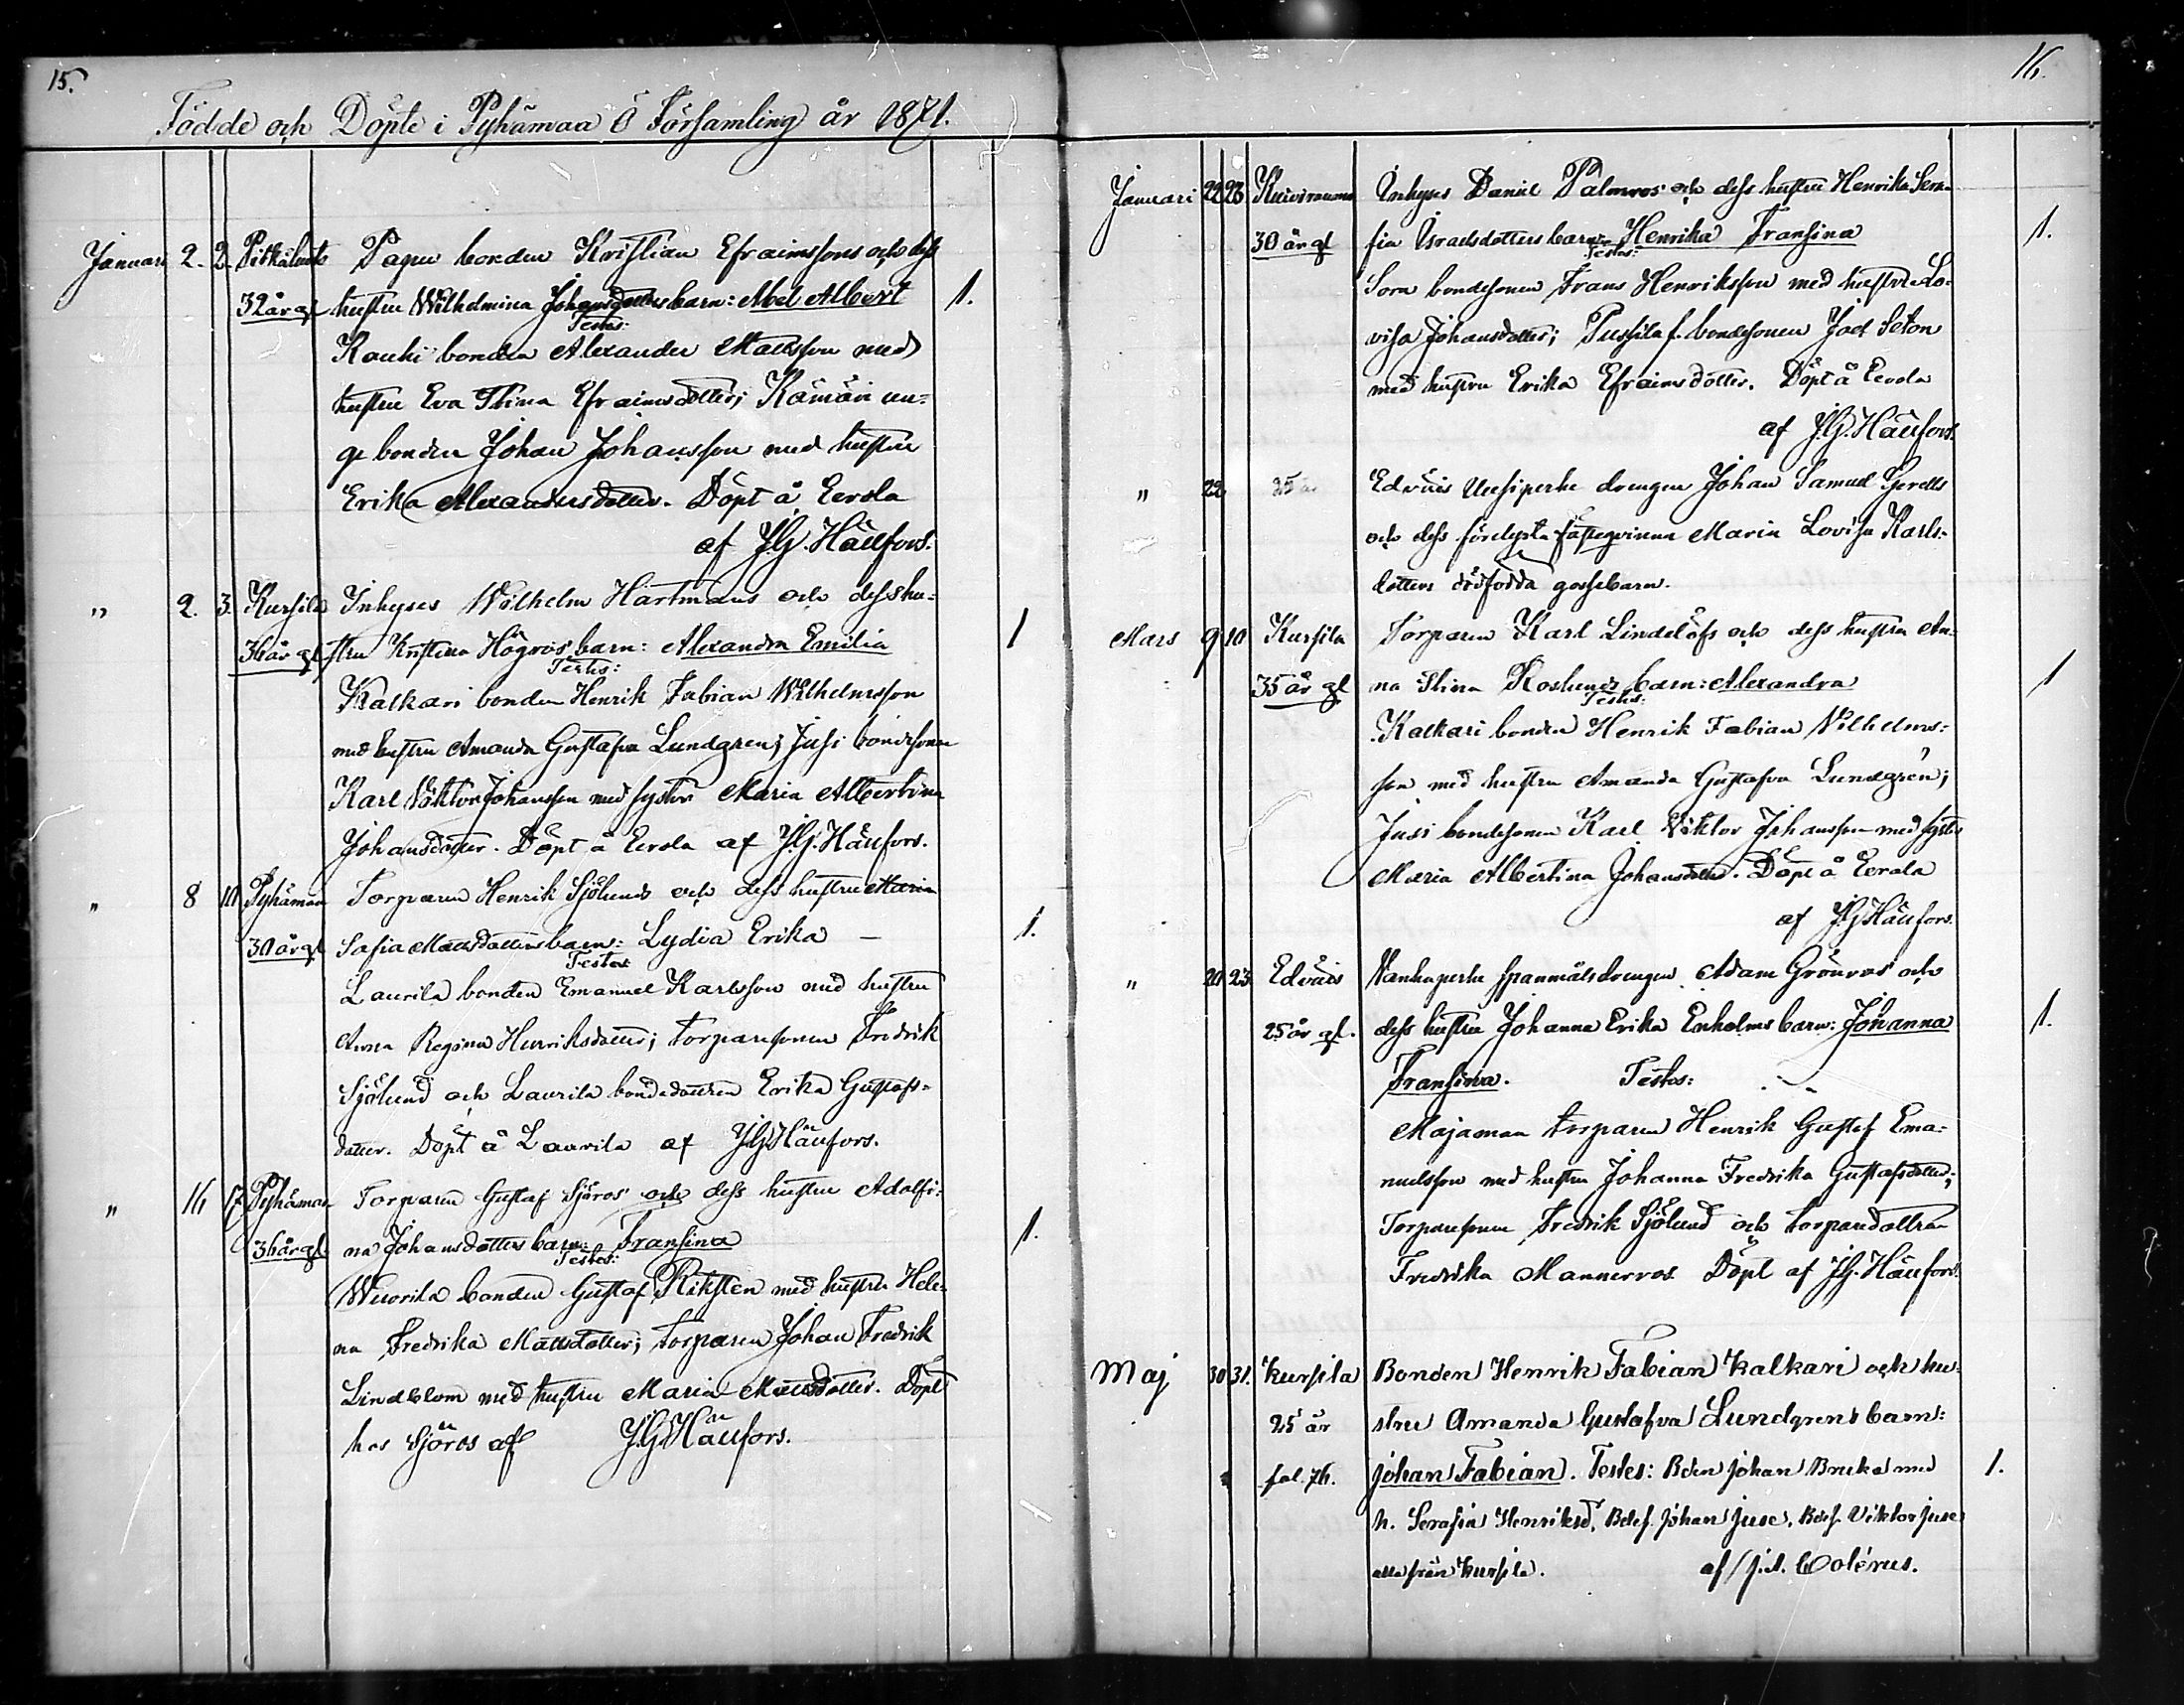 15.
Födde och Döpte i Pyhämaa Ö Församling år 1871.
Januari 2. 2. Pitkäluoto Papu bonden Kristian Efraimssons och dess
32 år gl hustru Wilhelmina Johansdotters barn: Abel Albert 1.
Testes:
Kauhi bonden Alexander Mattsson med
hustru Eva Stina Efraimsdotter; Kämäri un-
ge bonden Johan Johansson med hustru
Erika Alexandersdotter. Döpt å Eerola
af J.G. Häufors.
" 2. 3. Kursila Inhyses Wilhelm Hartmans och dess hu-
36 år gl stru Kristina Högros barn: Alexandra Emilia 1
Testes:
Kalkari bonden Henrik Fabian Wilhelmsson
med hustru Amanda Gustafva Lundgren; Jusi bondesonen
Karl Viktor Johansson med syster Maria Albertina
Johansdotter. Döpt å Eerola af J.G. Häufors.
" 8 10 Pyhämaa Torparen Henrik Sjölunds och dess hustru Maria
30 år gl Sofia Mattsdotters barn: Lydia Erika — 1.
Testes
Laurila bonden Emanuel Karlsson med hustru
Anna Regina Henriksdotter; torparesonen Fredrik
Sjölund och Laurila bondedottren Erika Gustafs-
dotter. Döpt å Laurila af J.G. Häufors.
" 16 17 Pyhämaa Torparen Gustaf Sjöros och dess hustru Adolfi-
36 år gl na Johansdotters barn: Fransina 1.
Testes:
Wuorila bonden Gustaf Riksten med hustru Hele-
na Fredrika Mattsdotter; torparen Johan Fredrik
Lindblom med hustru Maria Mattsdotter. Döpt
hos Sjöros af J.G. Häufors.
16.
Januari 22 23 Kuivrauma Inhyses Daniel Palmros och dess hustru Henrika Sera-
30 år gl fia Israelsdotters barn: Henrika Fransina 1.
Testes:
Sora bondesonen Frans Henriksson med hustru Lo-
visa Johansdotter; Pussila f. bondesonen Joel Seton
med hustru Erika Efraimsdotter. Döpt å Eerola
af J.G. Häufors.
" 22 25 år Edväis Uusiperhe drengen Johan Samuel Gerells
och dess förelysta fästeqvinna Maria Lovisa Karls-
dotters dödfödda gossebarn.
Mars 9 10 Kursila Torparen Karl Lindelöfs och dess hustru An-
35 år gl na Stina Roslunds barn: Alexandra 1
Testes:
Kalkari bonden Henrik Fabian Vilhelms-
son med hustru Amanda Gustafva Lundgrén;
Jusi bondesonen Karl Viktor Johansson med syster
Maria Albertina Johansdotter. Döpt å Eerola
af J.G. Häufors.
" 20 23 Edväis Vanhaperhe spanmålsdrengen Adam Grönros och
25 år gl. dess hustru Johanna Erika Enholms barn: Johanna 1.
Fransina. Testes:
Majamaa torparen Henrik Gustaf Ema-
nuelsson med hustru Johanna Fredrika Gustafsdotter;
Torparesonen Fredrik Sjölund och torparedottren
Fredrika Mannerros Döpt af J.G. Häufors.
Maj 30 31. Kursila Bonden Henrik Fabian Kalkari och hu-
25 år stru Amanda Gustafva Lundgrens barn:
fol. 76. Johan Fabian. Testes: Bden Johan Bruka med 1.
h. Serafia Henriksd, Bdes. Johan Juse, Bdes. Viktor Juse
alla från Kursila. af J.A. Colérus.